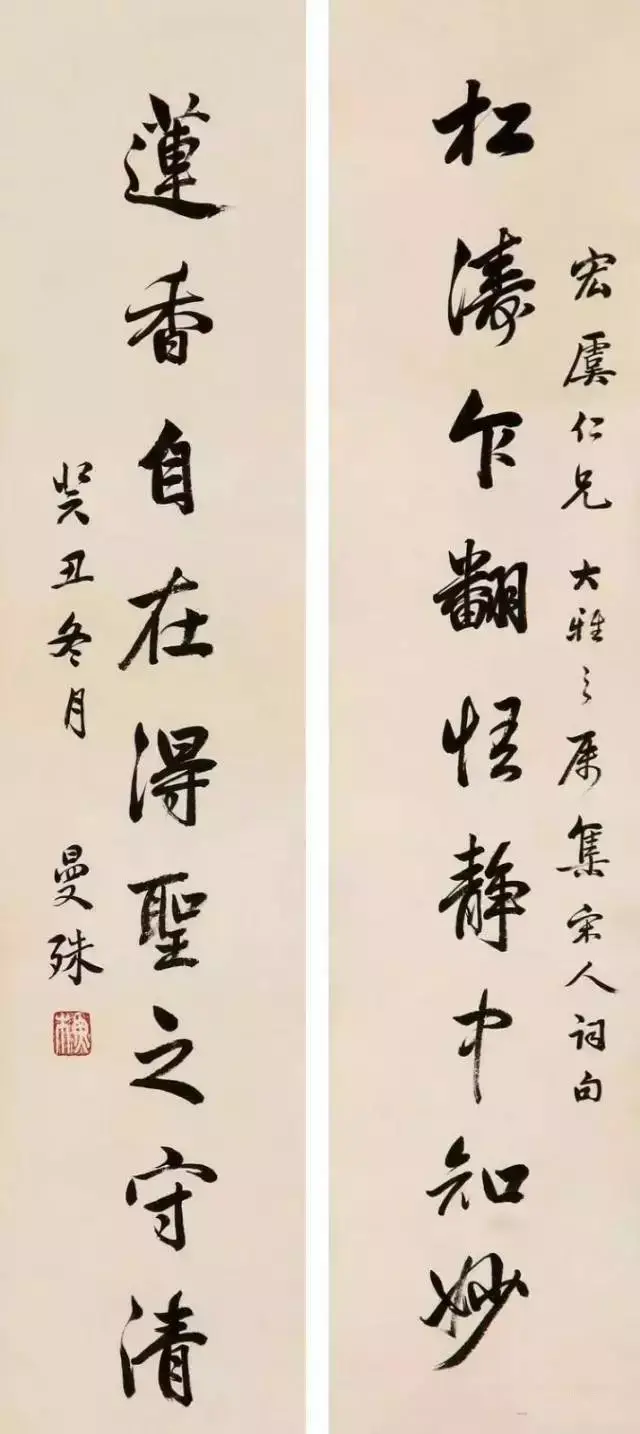 宏虞仁兄大雅之属集宋人词句
松涛乍翻悟静中知妙
蓮香自在得聖之守清
癸丑冬月
曼殊